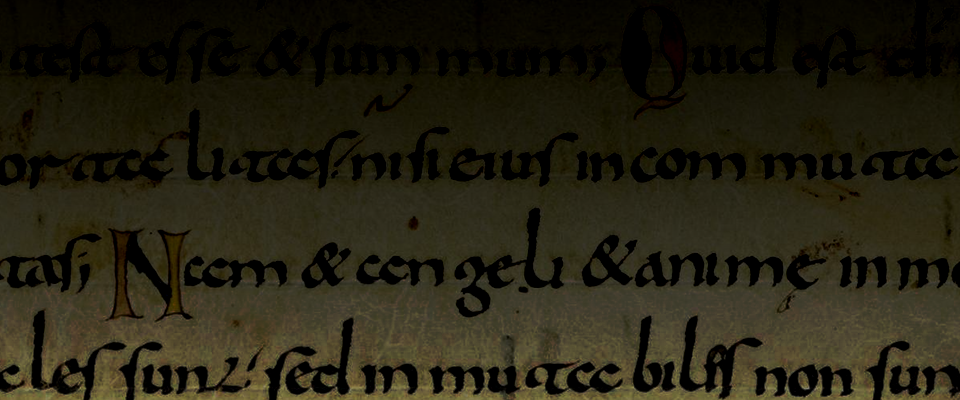 est esse & summum; Quid est di
or ta liatas; nisi eius in com muta
tasi Nam & angeli & anime in mo
les sunt sed in muta biles non sun